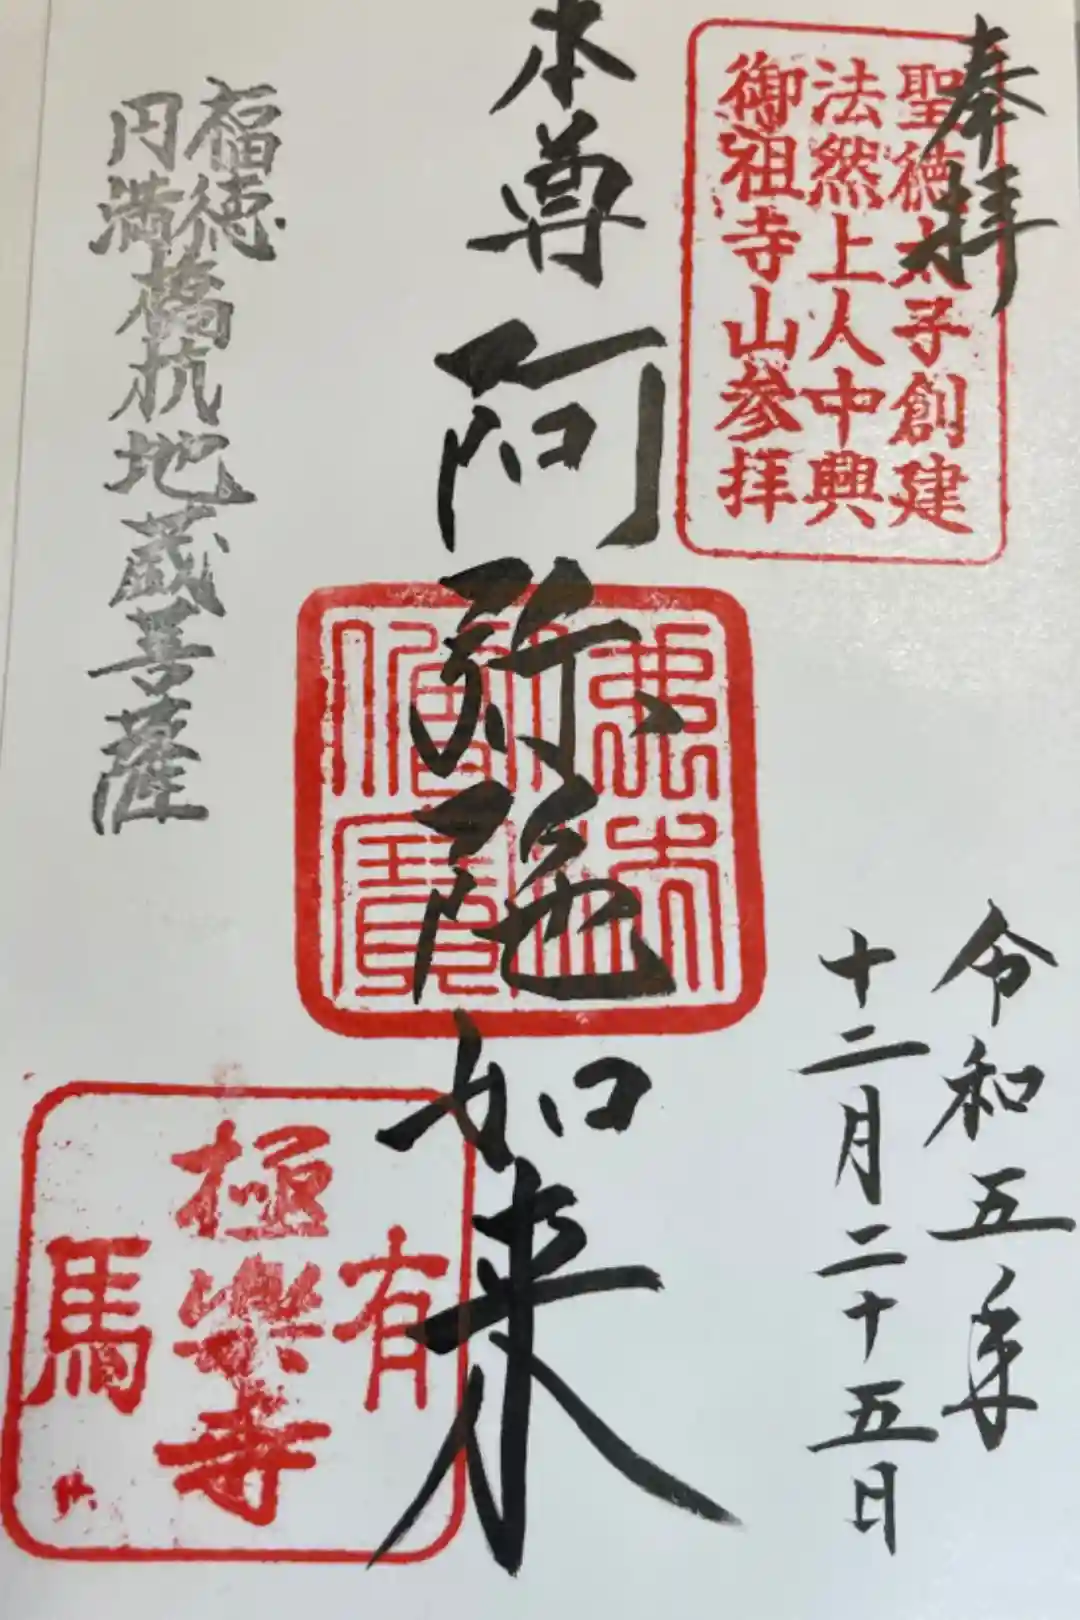 奉拝
聖徳太子創建
法然上人中興
御祖寺山参拝
本尊 阿弥陀如来
福徳
円満
橋杭地蔵菩薩
令和五年
十二月二十五日
有馬
極楽寺